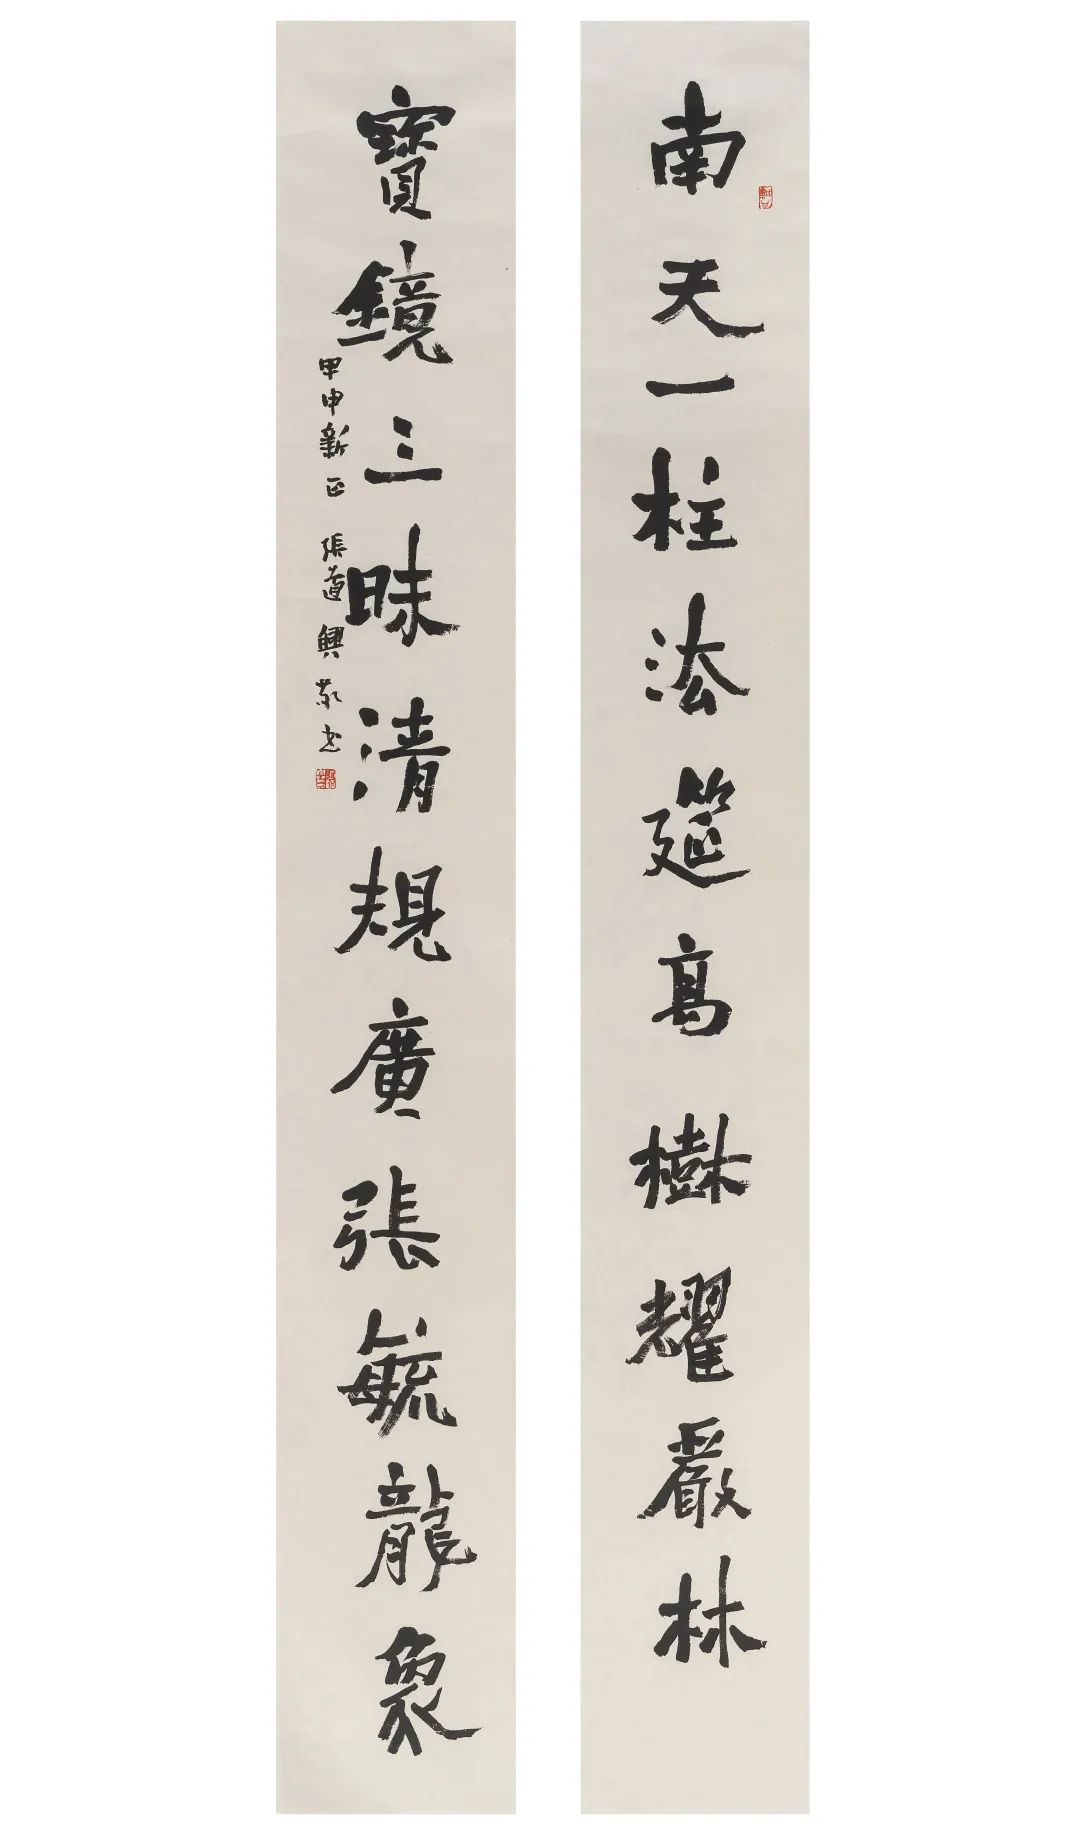 南天一柱法筵高樹耀嚴林
寶鏡三昧清規廣張毓龍象
甲申新正 張道興敬书